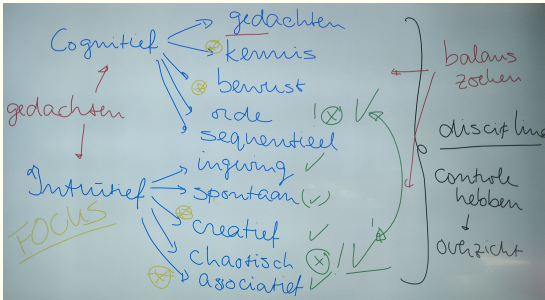 gedachten
Cognitief
kennis
bewust
orde
sequentieel
gedachten
ingwing
Intuïtief
spontaan
creatief
chaotisch
associatief
FOCUS
balans
zoeken
discipline
controle
hebben
overzicht